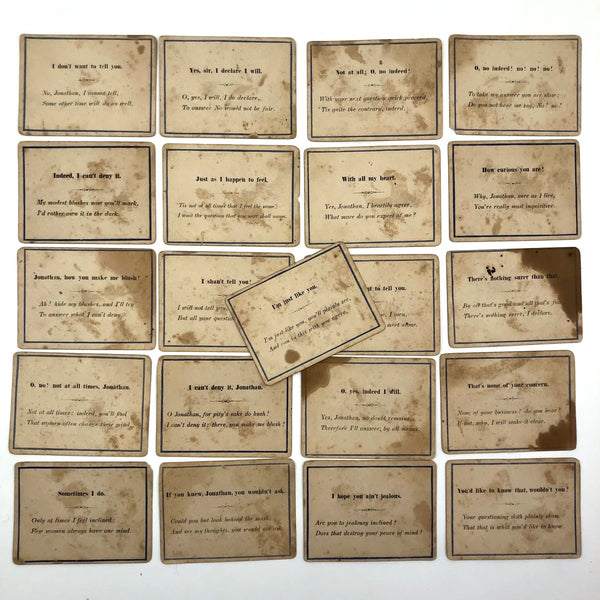 I don't want to tell you.
No, Jonathan, I cannot tell,
Some other time will do as well.
Yes, sir, I declare I will.
O, yes, I will, I do declare,
To answer No would not be fair.
Not at all; O, no indeed!
With your next question quick proceed,
'Tis quite the contrary, indeed.
O, no indeed! no! no! no!
To take my answer you are slow;
Do you not hear me say, No! no!
Indeed, I can't deny it.
My modest blushes now you'll mark,
I'd rather own it in the dark.
Just as I happen to feel.
'Tis not at all times that I feel the same;
I wait the question that you next shall name.
With all my heart.
Yes, Jonathan, I heartily agree,
What more do you expect of me?
How curious you are!
Why, Jonathan, sure as I live,
You're really most inquisitive.
Jonathan, how you make me blush!
Ah! hide my blushes, and I'll try
To answer what I can't deny.
I shan't tell you!
I will not tell you,
But all your question
I'm just like you.
I'm just like you, you'll plainly see,
And can in this with you agree.
to tell you.
There's nothing surer than that.
By all that's good and all that's fair,
There's nothing surer, I declare.
O, no! not at all times, Jonathan.
Not at all times; indeed, you'll find
That women often change their mind.
I can't deny it, Jonathan.
O Jonathan, for pity's sake do hush!
I can't deny it; there, you make me blush!
O, yes, indeed I still.
Yes, Jonathan, no doubt remains,
Therefore I'll answer, by all means.
That's none of your concern.
None of your business! do you hear?
If not, why, I will make it clear.
Sometimes I do.
Only at times I feel inclined;
Few women always have one mind.
If you knew, Jonathan, you wouldn't ask.
Could you but look behind the mask,
And see my thoughts, you would not ask.
I hope you ain't jealous.
Are you to jealousy inclined?
Does that destroy your peace of mind?
You'd like to know that, wouldn't you?
Your questioning doth plainly show
That that is what you'd like to know.